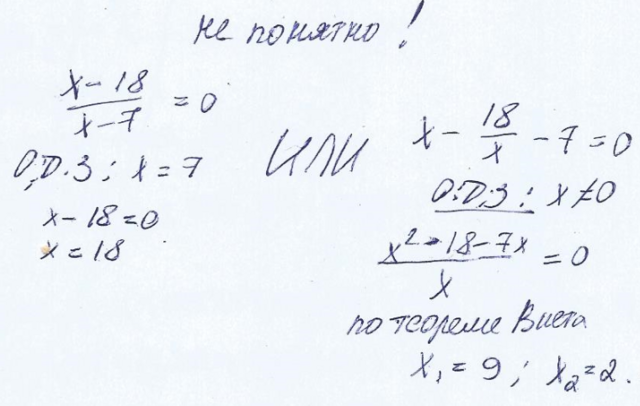 не понятно!
x-18/x-7 = 0
О.D.З: x = 7
x-18=0
x = 18
ИЛИ
x - 18/x - 7 = 0
О.D.З: x≠0
x²-18-7x/x = 0
по теореме Виета
x₁ = 9; x₂=2.